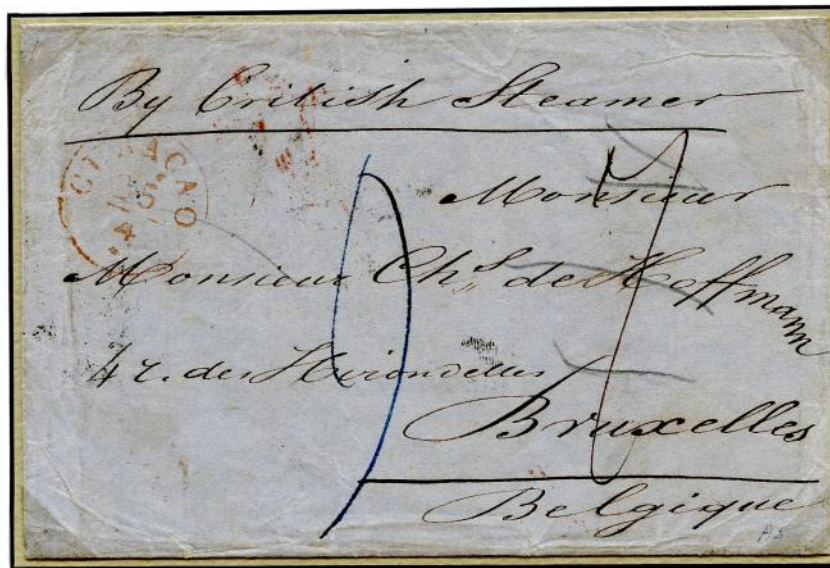 By British Steamer
CURACAO
Monsieur
Monsieur Ch.s de Hoffmann
4 r. des Hirondelles
Bruxelles
Belgique